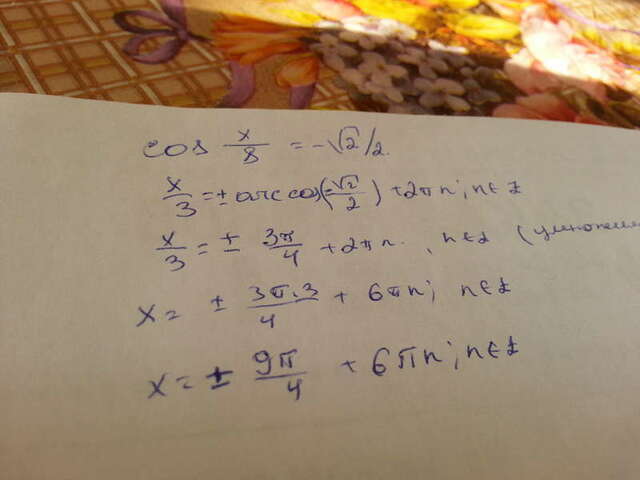 cos x/8 = -√2/2.
x/3 = ± arccos(-√2/2) + 2πn; n∈Z
x/3 = ± 3π/4 + 2πn. , n∈Z (
x = ± 3π.3/4 + 6πn; n∈Z
x = ± 9π/4 + 6πn; n∈Z